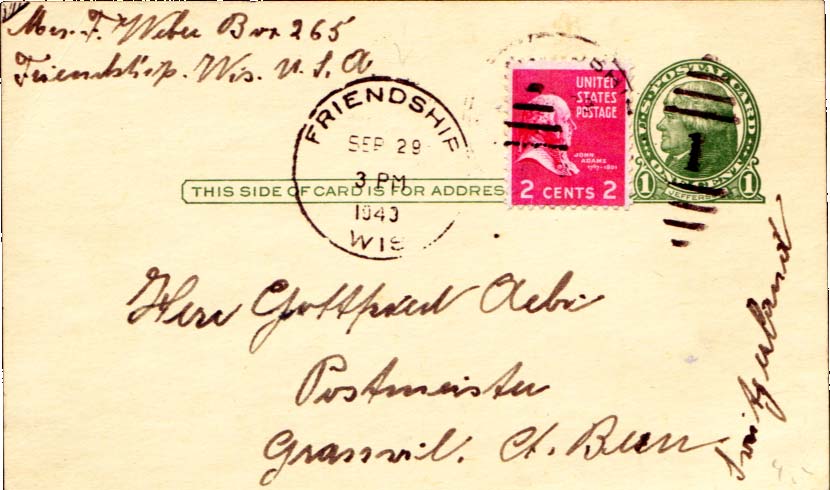 Mrs. F. Weber Box 265
Friendship. Wis. U. S. A
FRIENDSHIP
SEP 29
3 PM
1943
WIS
UNITED
STATES
POSTAGE
JOHN
ADAMS
1797-1801
2 CENTS 2
U.S. POSTAL CARD
ONE CENT
1 1
JEFFERSON
THIS SIDE OF CARD IS FOR ADDRES
Herr Gottfried Aebi
Postmeister
Grasswil. Ct. Bern
Switzerland